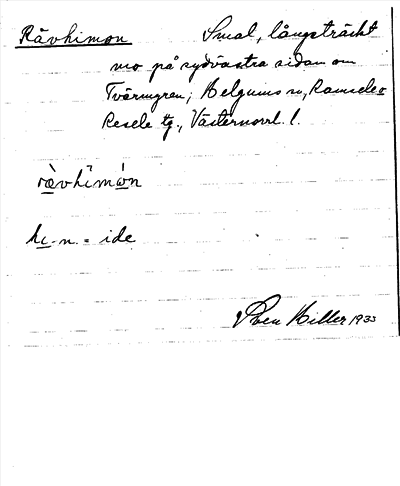 Rävhimon Smal, långsträckt
mo på sydvästra sidan om
Tvärmyren; Helgums sn, Ramsele o
Resele tg, Västernorrl. l.
rävhimón
hi n. = ide
Hiller 1933